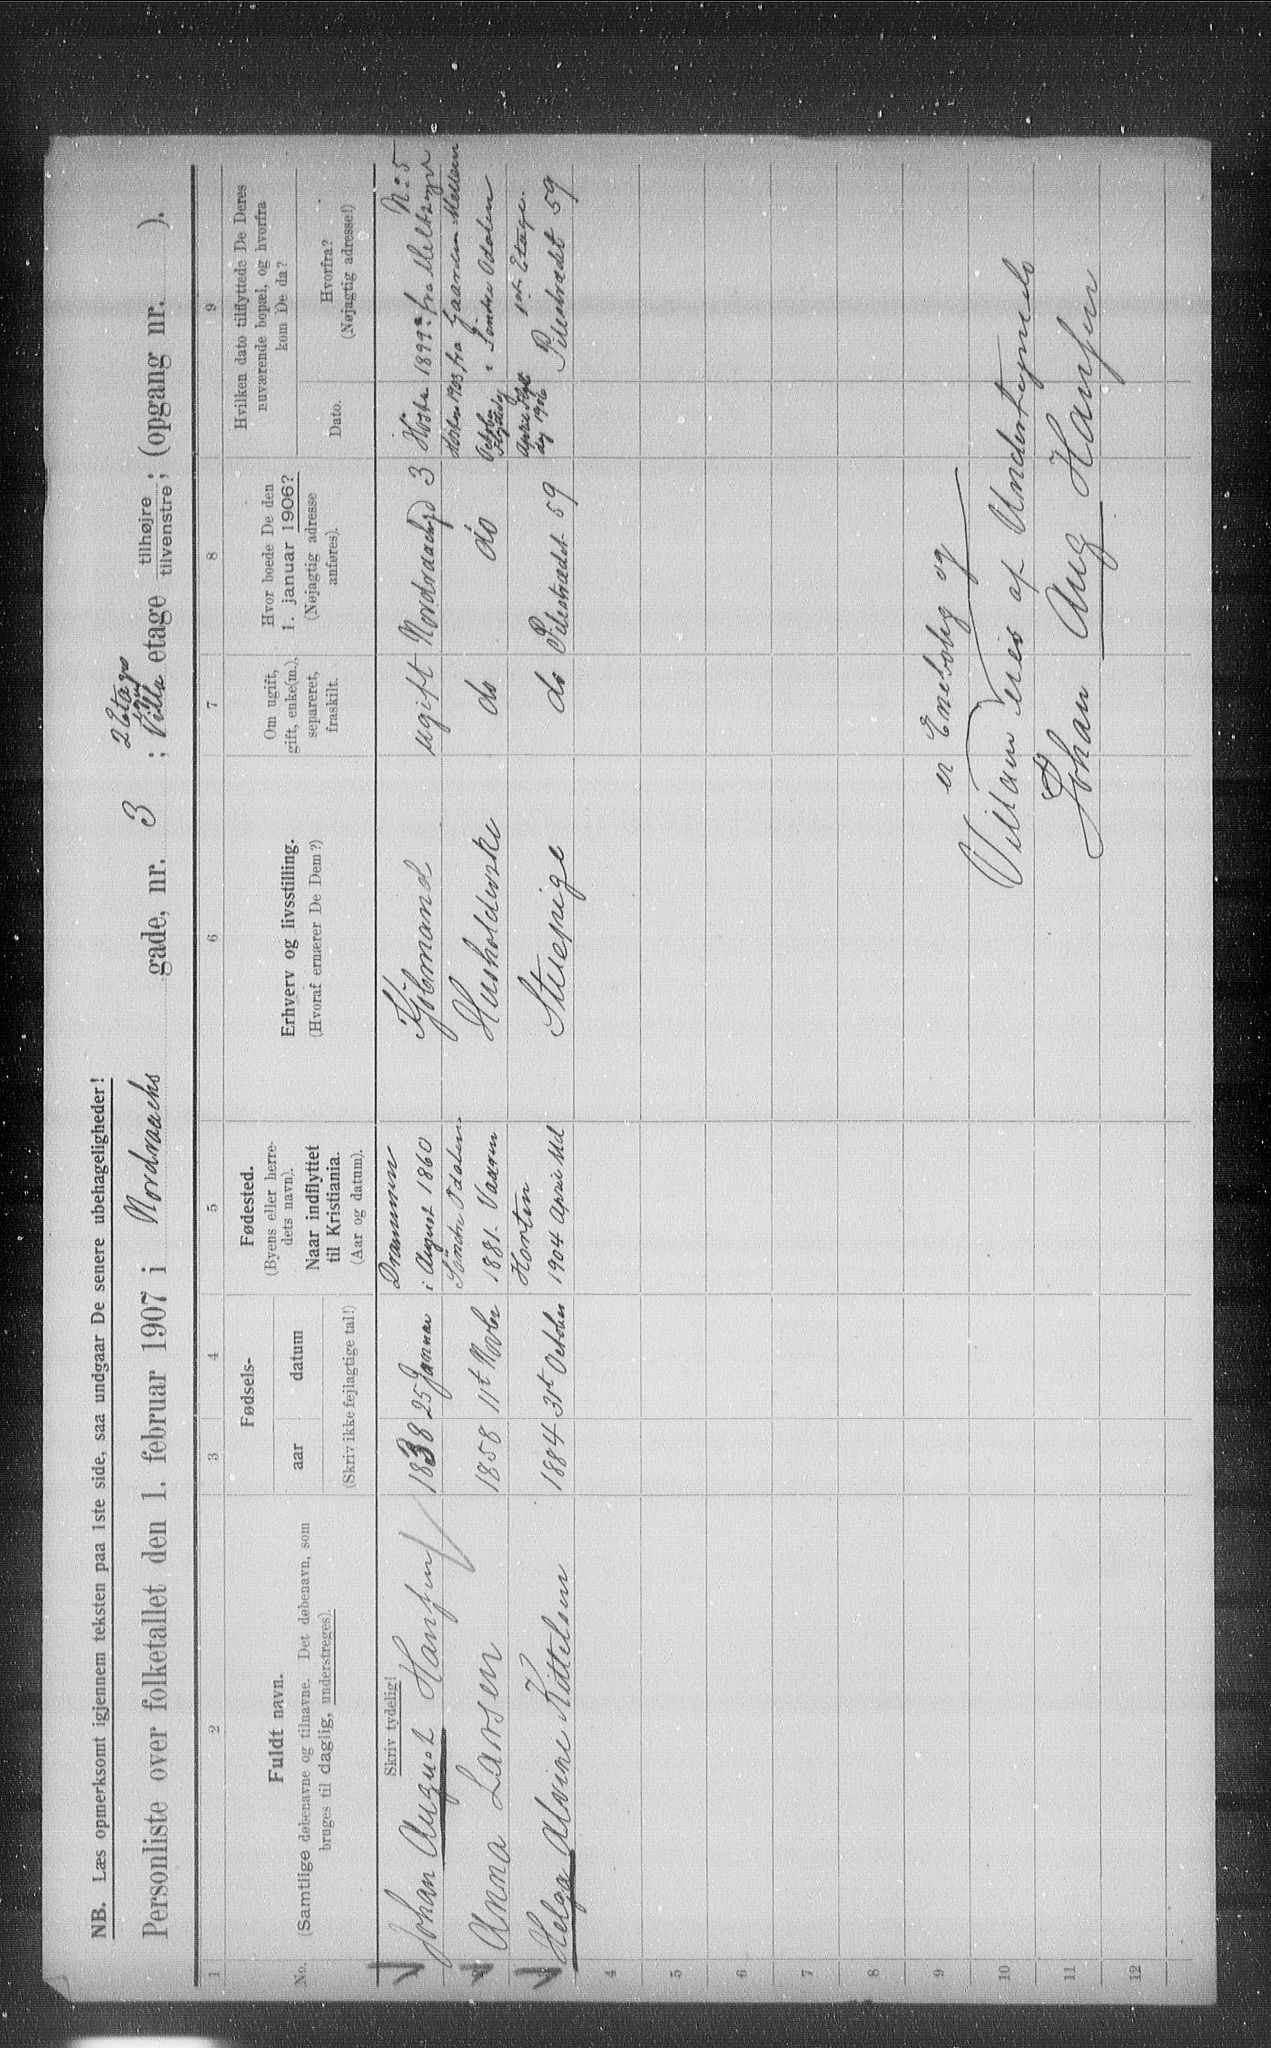 NB. Læs opmerksomt igjennem teksten paa 1ste side, saa undgaar De senere ubehageligheder!
Personliste over folketallet den 1. februar 1907 i Nordraachs gade, nr. 3 ; 2 Etages Villa etage tilhøjre tilvenstre; (opgang nr. ).
1 2 3 4 5 6 7 8 9
No.
Fuldt navn.
(Samtlige døbenavne og tilnavne. Det døbenavn, som
bruges til daglig, understreges).
Fødsels-
aar datum
(Skriv ikke fejlagtige tal!)
Fødested.
(Byens eller herre-
dets navn).
Naar indflyttet
til Kristiania.
(Aar og datum).
Erhverv og livsstilling.
(Hvoraf ernærer De Dem?)
Om ugift,
gift, enke(m.),
separeret,
fraskilt.
Hvor boede De den
1. januar 1906?
(Nøjagtig adresse
anføres).
Hvilken dato tilflyttede De Deres
nuværende bopæl, og hvorfra
kom De da?
Dato.
Hvorfra?
(Nøjagtig adresse!)
Skriv tydelig!
Johan August Hansen 1838 25 Januar Drammen i August 1860 Kjöbmand ugift Nordraachsgd 3 Høsten 1899 fra Meltzersgd No 5
Anna Larsen 1858 11t Novbr Söndre Odalen 1881. Vaaren Husholderske do do Høsten 1903, fra Gaarden Mellem
October Søndre Odalen
Helga Alvine Kittelsen 1884 31t October Horten 1904 April Md Stuepige do Pilestrædet 59 April 1906 1st Etage. Pilestrædet 59
4
5
6
7
8
9
10
11
12
er Enebolig og
Villaen Eies af Undertegnede
Johan Aug Hansen